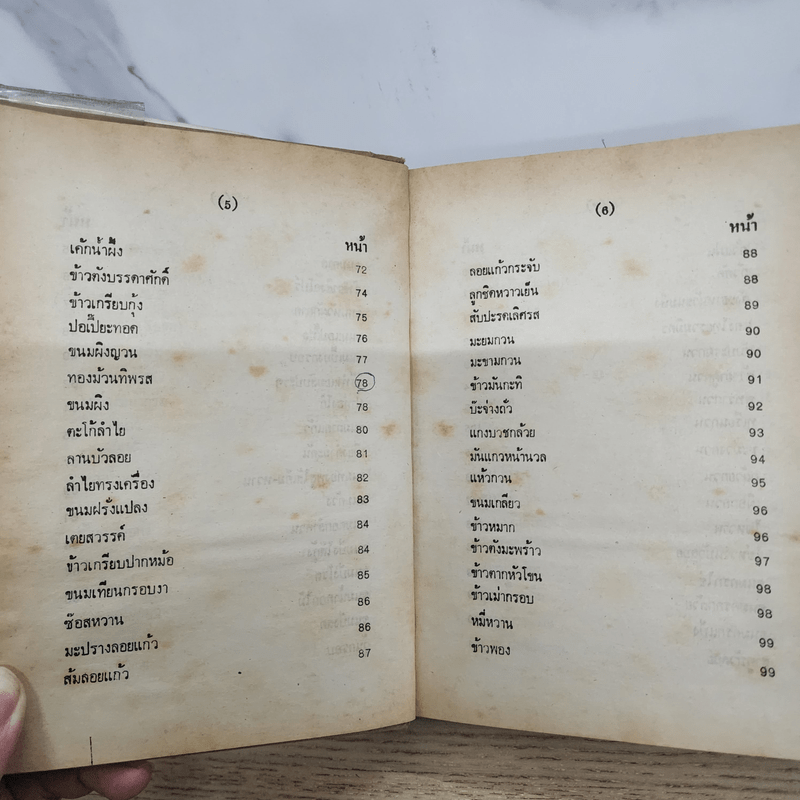 (5)
หน้า
เค้กน้ำผึ้ง 72
ข้าวตังบรรดาศักดิ์ 74
ข้าวเกรียบกุ้ง 75
ปอเปี๊ยะทอด 76
ขนมผิงญวน 77
ทองม้วนทิพรส 78
ขนมผิง 78
ตะโก้ลำไย 80
ลานบัวลอย 81
ลำไยทรงเครื่อง 82
ขนมฝรั่งแปลง 83
เตยสวรรค์ 84
ข้าวเกรียบปากหม้อ 84
ขนมเทียนกรอบงา 85
ซ๊อสหวาน 86
มะปรางลอยแก้ว 86
ส้มลอยแก้ว 87
(6)
หน้า
ลอยแก้วกระจับ 88
ลูกชิดหวาวเย็น 88
สับปะรดเลิศรส 89
มะยมกวน 90
มะขามกวน 90
ข้าวมันกะทิ 91
บ๊ะจ่างถั่ว 92
แกงบวชกล้วย 93
มันแกวหน้านวล 94
แห้วกวน 95
ขนมเกลียว 96
ข้าวหมาก 96
ข้าวตังมะพร้าว 97
ข้าวตากหัวโขน 98
ข้าวเม่ากรอบ 98
หมี่หวาน 99
ข้าวพอง 99